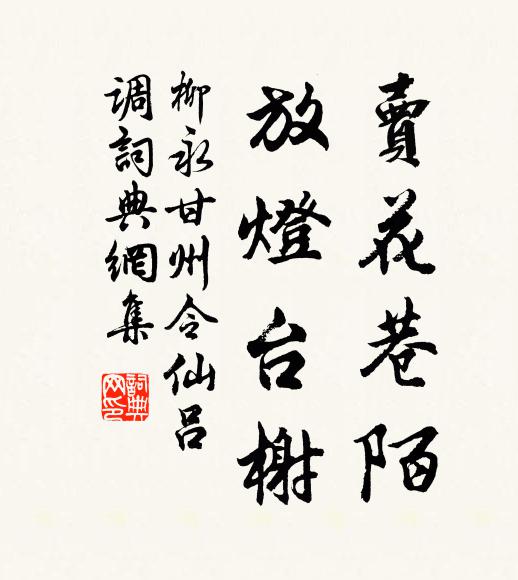 賣花巷陌
放燈台榭
柳永甘州令仙吕
调詞典網集
詞典
网印